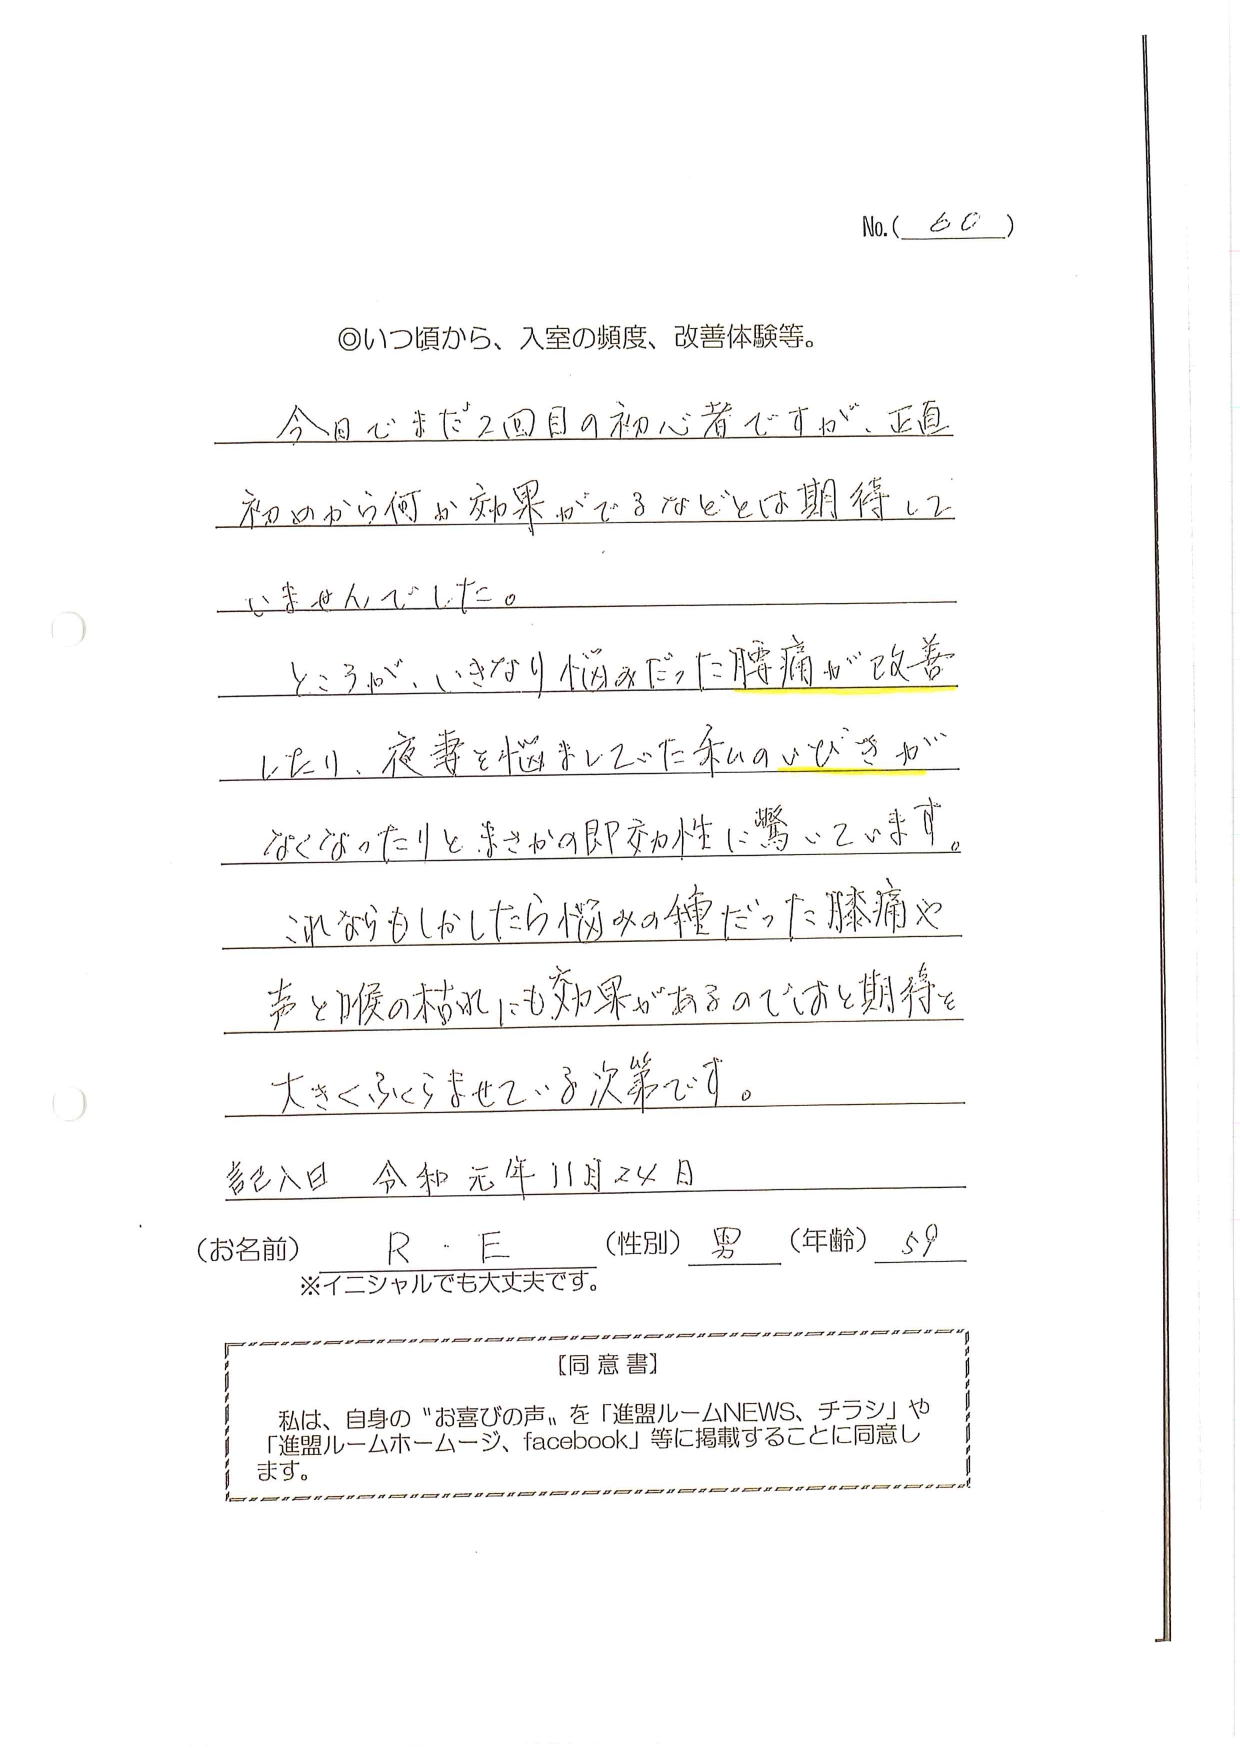 No.( 60 )
◎いつ頃から、入室の頻度、改善体験等。
今日でまだ2回目の初心者ですが、正直
初めから何か効果がでるなどとは期待して
いませんでした。
ところが、いきなり悩みだった腰痛が改善
したり、夜妻を悩ましていた私のいびきが
なくなったりとまさかの即効性に驚いています。
これならもしかしたら悩みの種だった膝痛や
声と喉の枯れにも効果があるのではと期待を
大きくふくらませている次第です。
記入日 令和元年11月24日
(お名前) R・E (性別) 男 (年齢) 59
※イニシャルでも大丈夫です。
【同意書】
私は、自身の〝お喜びの声〟を「進盟ルームNEWS、チラシ」や
「進盟ルームホームージ、facebook」等に掲載することに同意し
ます。